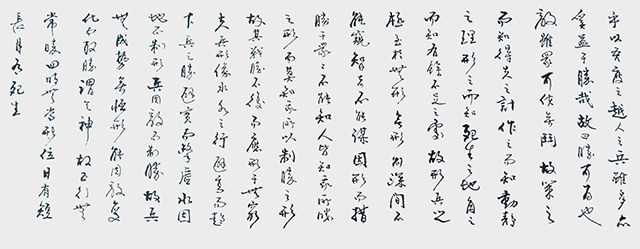 乎以吾度之越人之兵雖多亦
奚益于勝哉故曰勝可為也
敵雖眾可使無鬥故策之
而知得失之計作之而知動靜
之理形之而知死生之地角之
而知有餘不足之處故形兵之
極至於無形無形則深間不
能窺智者不能謀因形而措
勝于眾眾不能知人皆知我所以勝
之形而莫知吾所以制勝之形
故其戰勝不復而應形于無窮
夫兵形像水水之行避高而趨
下兵之勝避實而擊虛水因
地而制形兵因敵而制勝故兵
無成勢無恒形能因敵變
化而取勝謂之神故五行無
常勝四時無常形位日有短
長月有死生